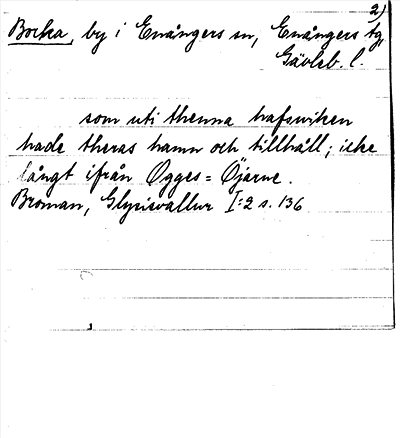 2)
Borka, by i Enångers sn, Enångers tg,
Gävleb. l.
som uti thenna hafswiken
hade theras hamn och tillhåll; icke
långt ifrån Ogges=Öjarne.
Broman, Glysisvallur I:2 s. 136